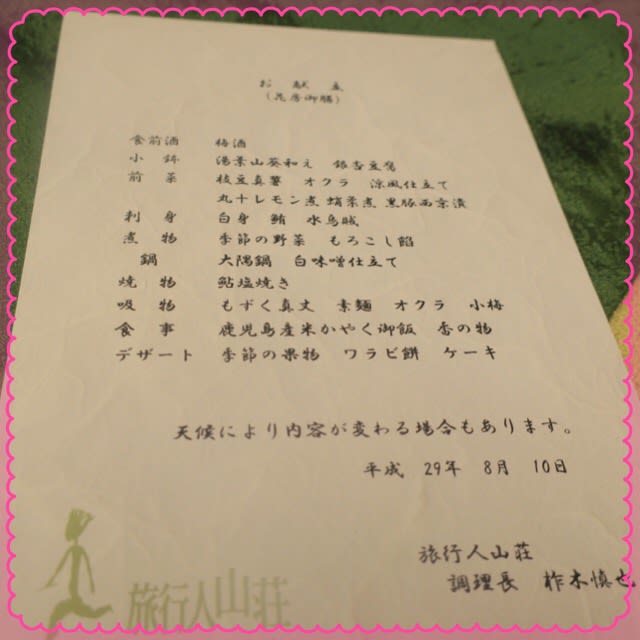 お 献 立
(花房御膳)
食前酒 梅酒
小 鉢 湯葉山葵和え 銀杏豆腐
前 菜 枝豆真薯 オクラ 涼風仕立て
丸十レモン煮 蛸柔煮 黒豚西京漬
刺 身 白身 鮪 水烏賊
煮 物 季節の野菜 もろこし餡
鍋 大隅鍋 白味噌仕立て
焼 物 鮎塩焼き
吸 物 もずく真丈 素麺 オクラ 小梅
食 事 鹿児島産米かやく御飯 香の物
デザート 季節の果物 ワラビ餅 ケーキ
天候により内容が変わる場合もあります。
平成 29年 8月 10日
旅行人山荘
調理長 柞木慎也
旅行人山荘